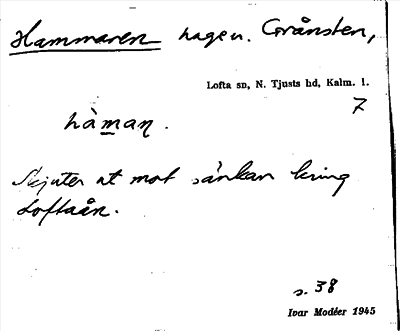 Hammaren hagen. Grånsten,
Lofta sn, N. Tjusts hd, Kalm. l.
7
hàman.
Skjuter ut mot sänkan kring
Loftaån.
s. 38
Ivar Modéer 1945